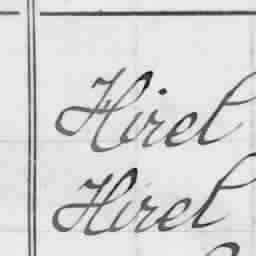 Hirel
Hirel